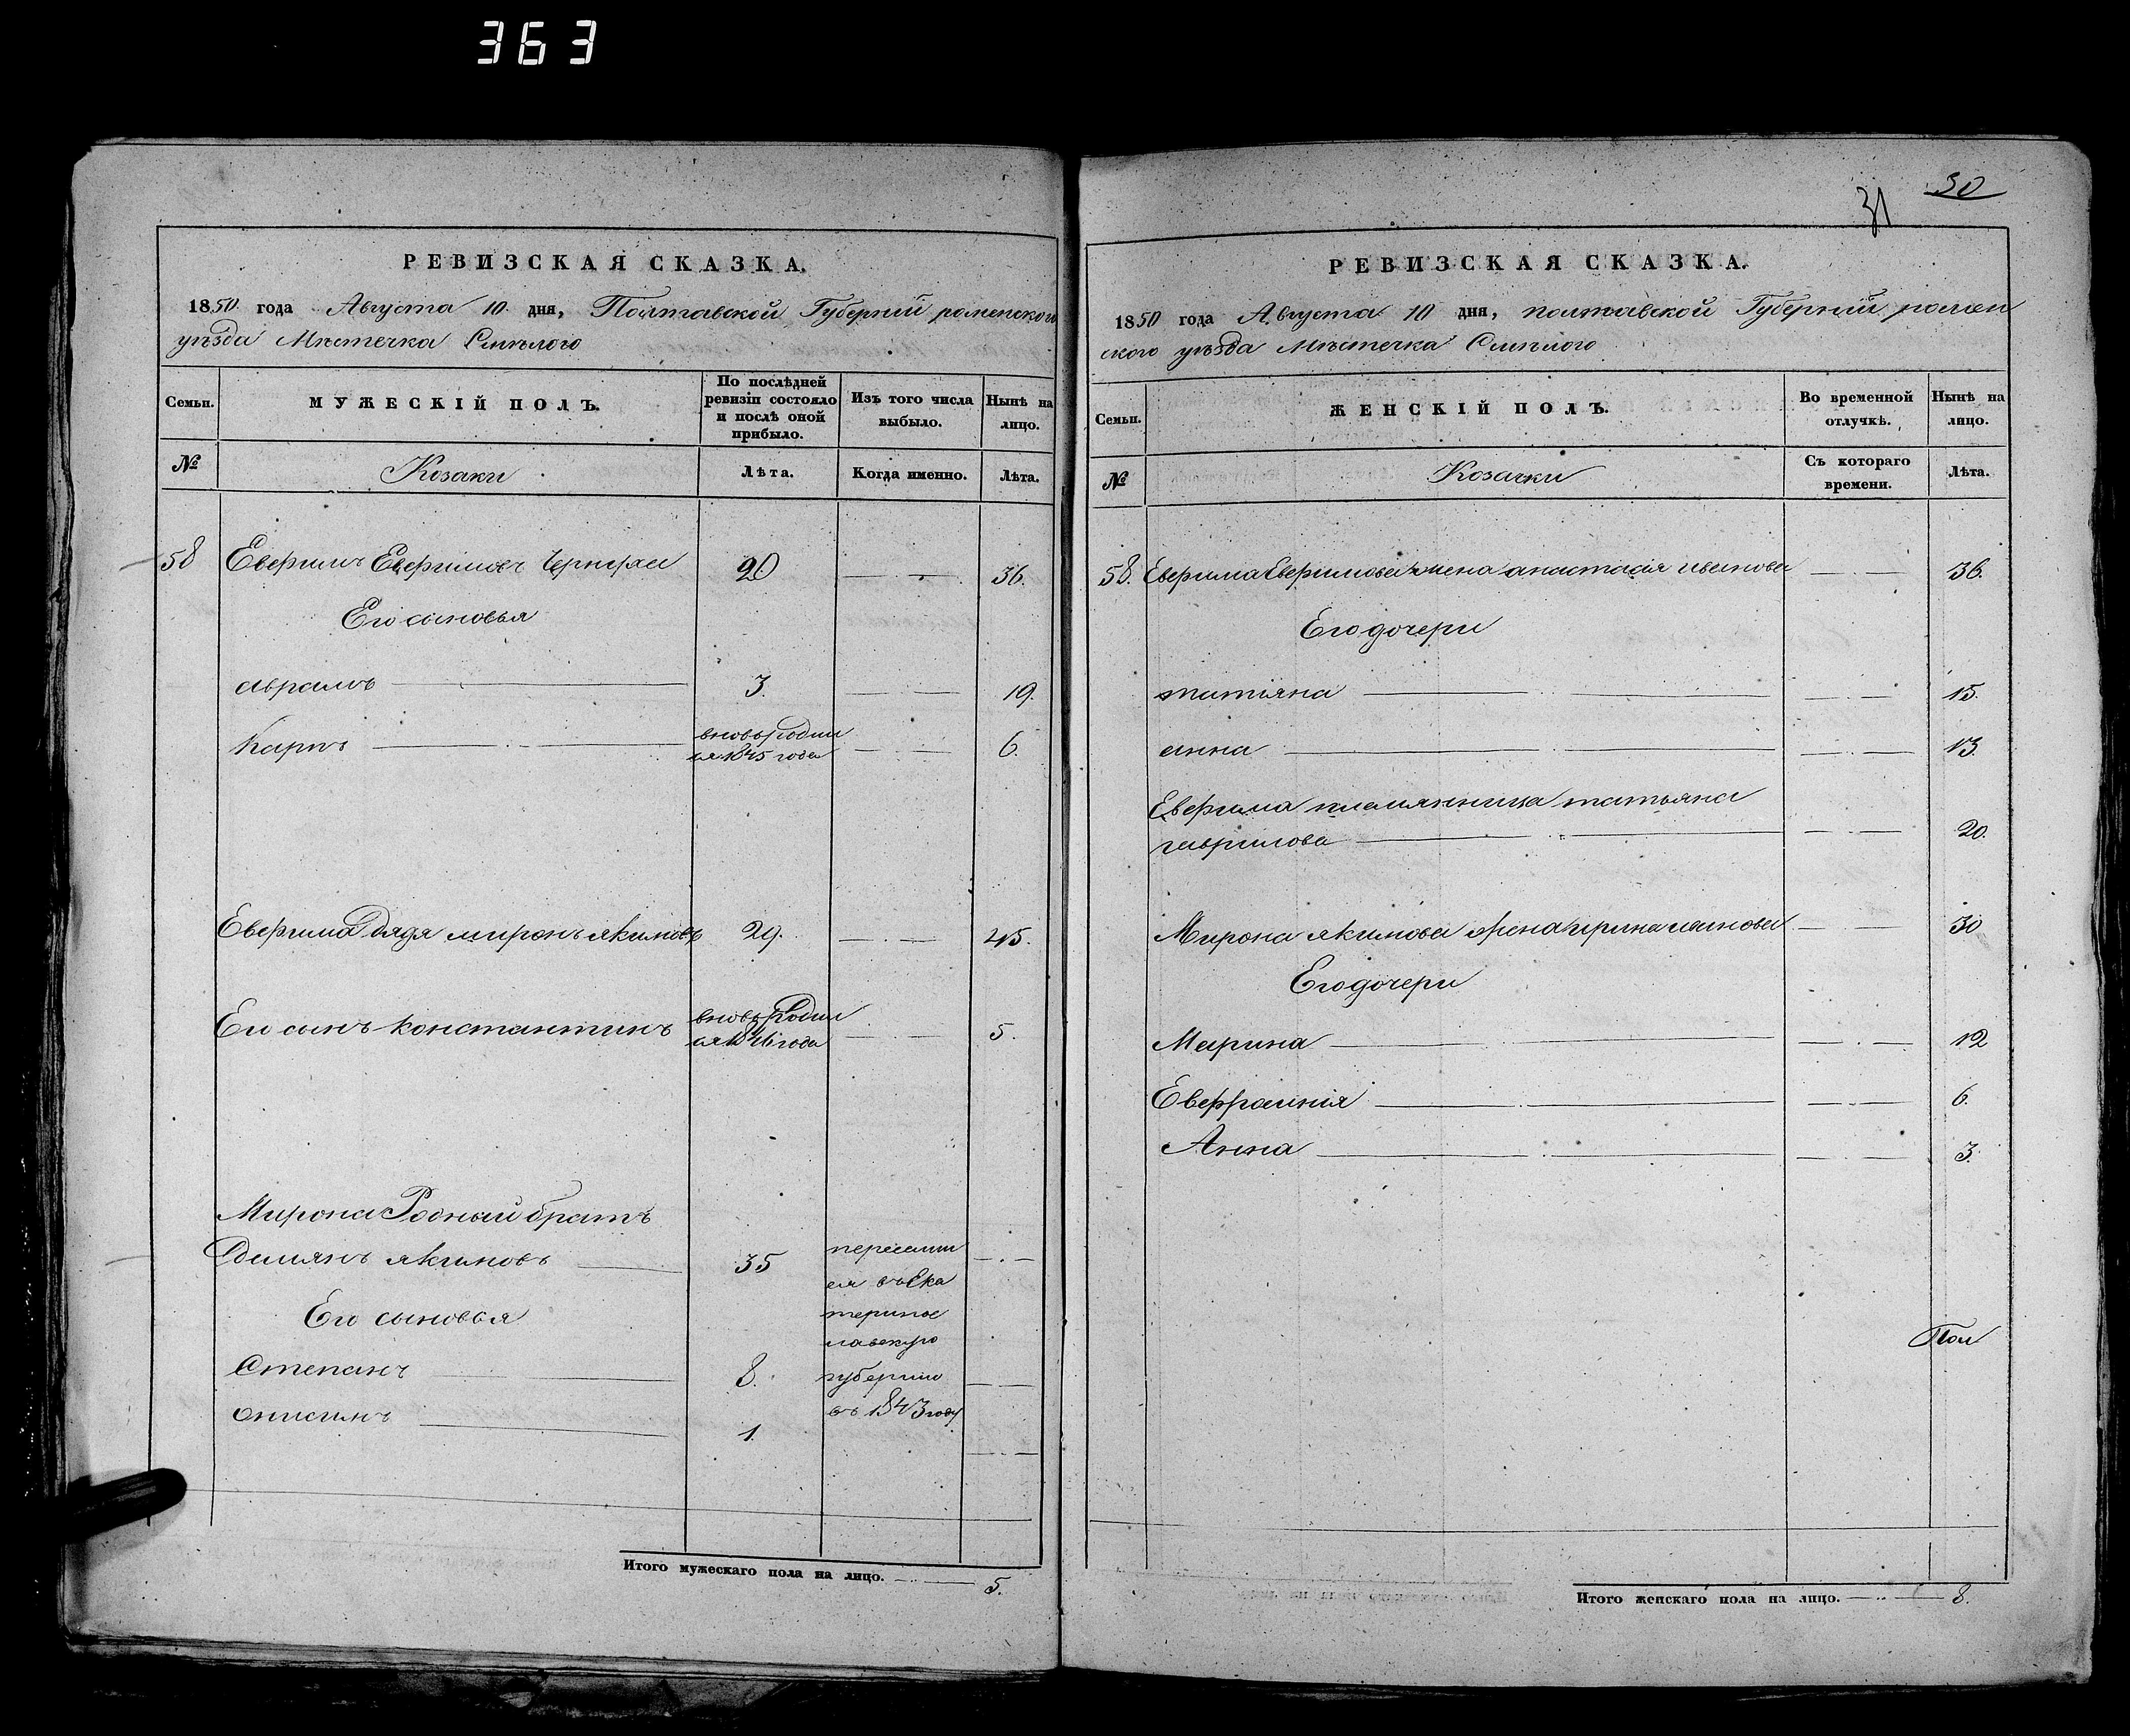 363
РЕВИЗСКАЯ СКАЗКА.
1850 года Августа 10 дня, Полтавской Губерніи роменского
уѣзда Мѣстечка Смѣлого
Семьи.
МУЖЕСКІЙ ПОЛЪ.
По послѣдней ревизіи состояло и послѣ оной прибыло.
Изъ того числа выбыло.
Нынѣ на лицо.
№
Козаки
Лѣта.
Когда именно.
Лѣта.
58 Евфимъ Евфимовъ 20 36.
Его сыновья
аврамъ 3. 19.
Карпъ вновь родил
ся 1845 года 6.
Евфима Дядя миронъ якимовъ 29. 45.
Его сынъ константинъ вновь Родил
ся 1846 года 5.
Мирона Родный братъ
Демянъ якимовъ 35 переселил
ся въ Ека
Его сыновья теринос
лавскую
Степанъ 8. губернію
онисимъ 1. въ 1843 году
Итого мужескаго пола на лицо. 5.
31 30
РЕВИЗСКАЯ СКАЗКА.
1850 года Августа 10 дня, полтавской Губерніи ромен
ского уѣзда Мѣстечка Смѣлого
Семьи.
ЖЕНСКІЙ ПОЛЪ.
Во временной отлучкѣ.
Нынѣ на лицо.
№
Козачки
Съ котораго времени.
Лѣта.
58. Евфима Евфимова жена анастасія иванова 36.
Его дочери
татіяна 15.
анна 13.
Евфима племянница татьяна
гаврилова 20.
Мирона якимова жена ирина иванова 30
Его дочери
Марина 12
Евфросинія 6.
Анна 3.
Итого женскаго пола на лицо. 8.